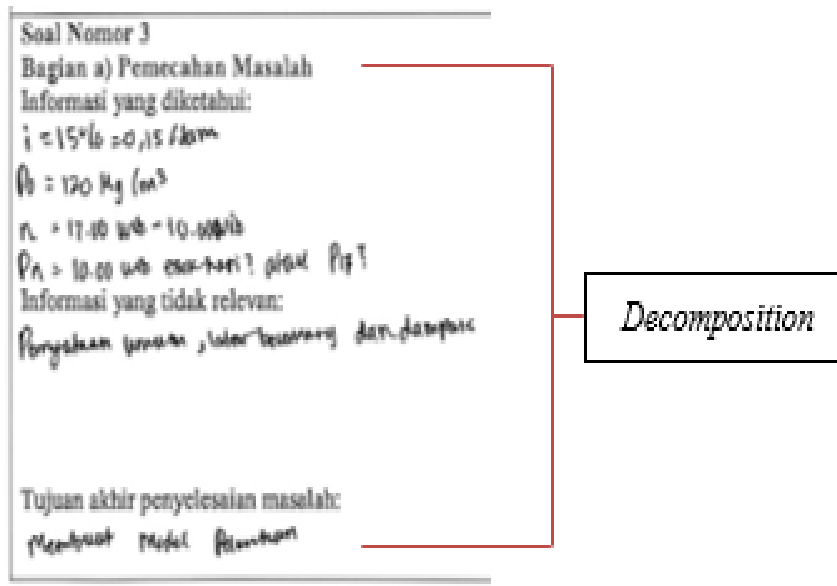 Soal Nomor 3
Bagian a) Pemecahan Masalah
Informasi yang diketahui:
i = 15% = 0,15 / jam
P0 = 120 Kg /m³
n = 17.00 wib - 10.00 wib
Pn = 10.00 wib esok hari? atau P17?
Informasi yang tidak relevan:
Pernyataan umum, latar belakang dan dampak
Tujuan akhir penyelesaian masalah:
Membuat Model
Decomposition